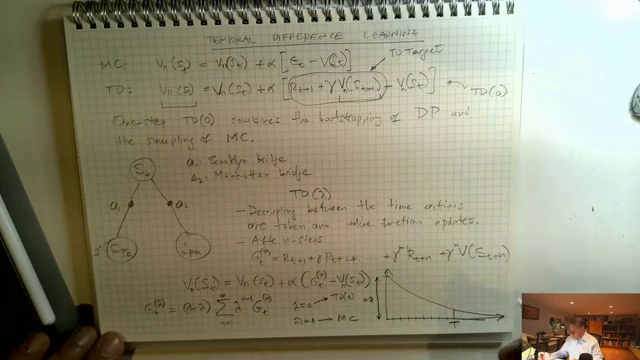 TEMPORAL DIFFERENCE LEARNING
MC: Vπ(St) = Vπ(St) + α [Gt − V(St)]
TD Target
TD: Vπ(St) = Vπ(St) + α [Rt+1 + γ Vπ(St+1) − Vπ(St)]
TD(0)
One-step TD(0) combines the bootstrapping of DP and
the sampling of MC.
a1: Brooklyn bridge
a2: Manhattan bridge
a1
a2
TD(λ)
- Decoupling between the time actions
are taken and value function updates.
- After n-steps
Gt(n) = Rt+1 + γ Rt+2 + ... + γ^n-1 Rt+n + γ^n V(St+n)
Vπ(St) = Vπ(St) + α (Gt(n) − Vπ(St))
Gt(λ) = (1-λ) ∑ n=1 ∞ λ^n-1 Gt(n)
λ=0 → TD(0)
→ MC
T